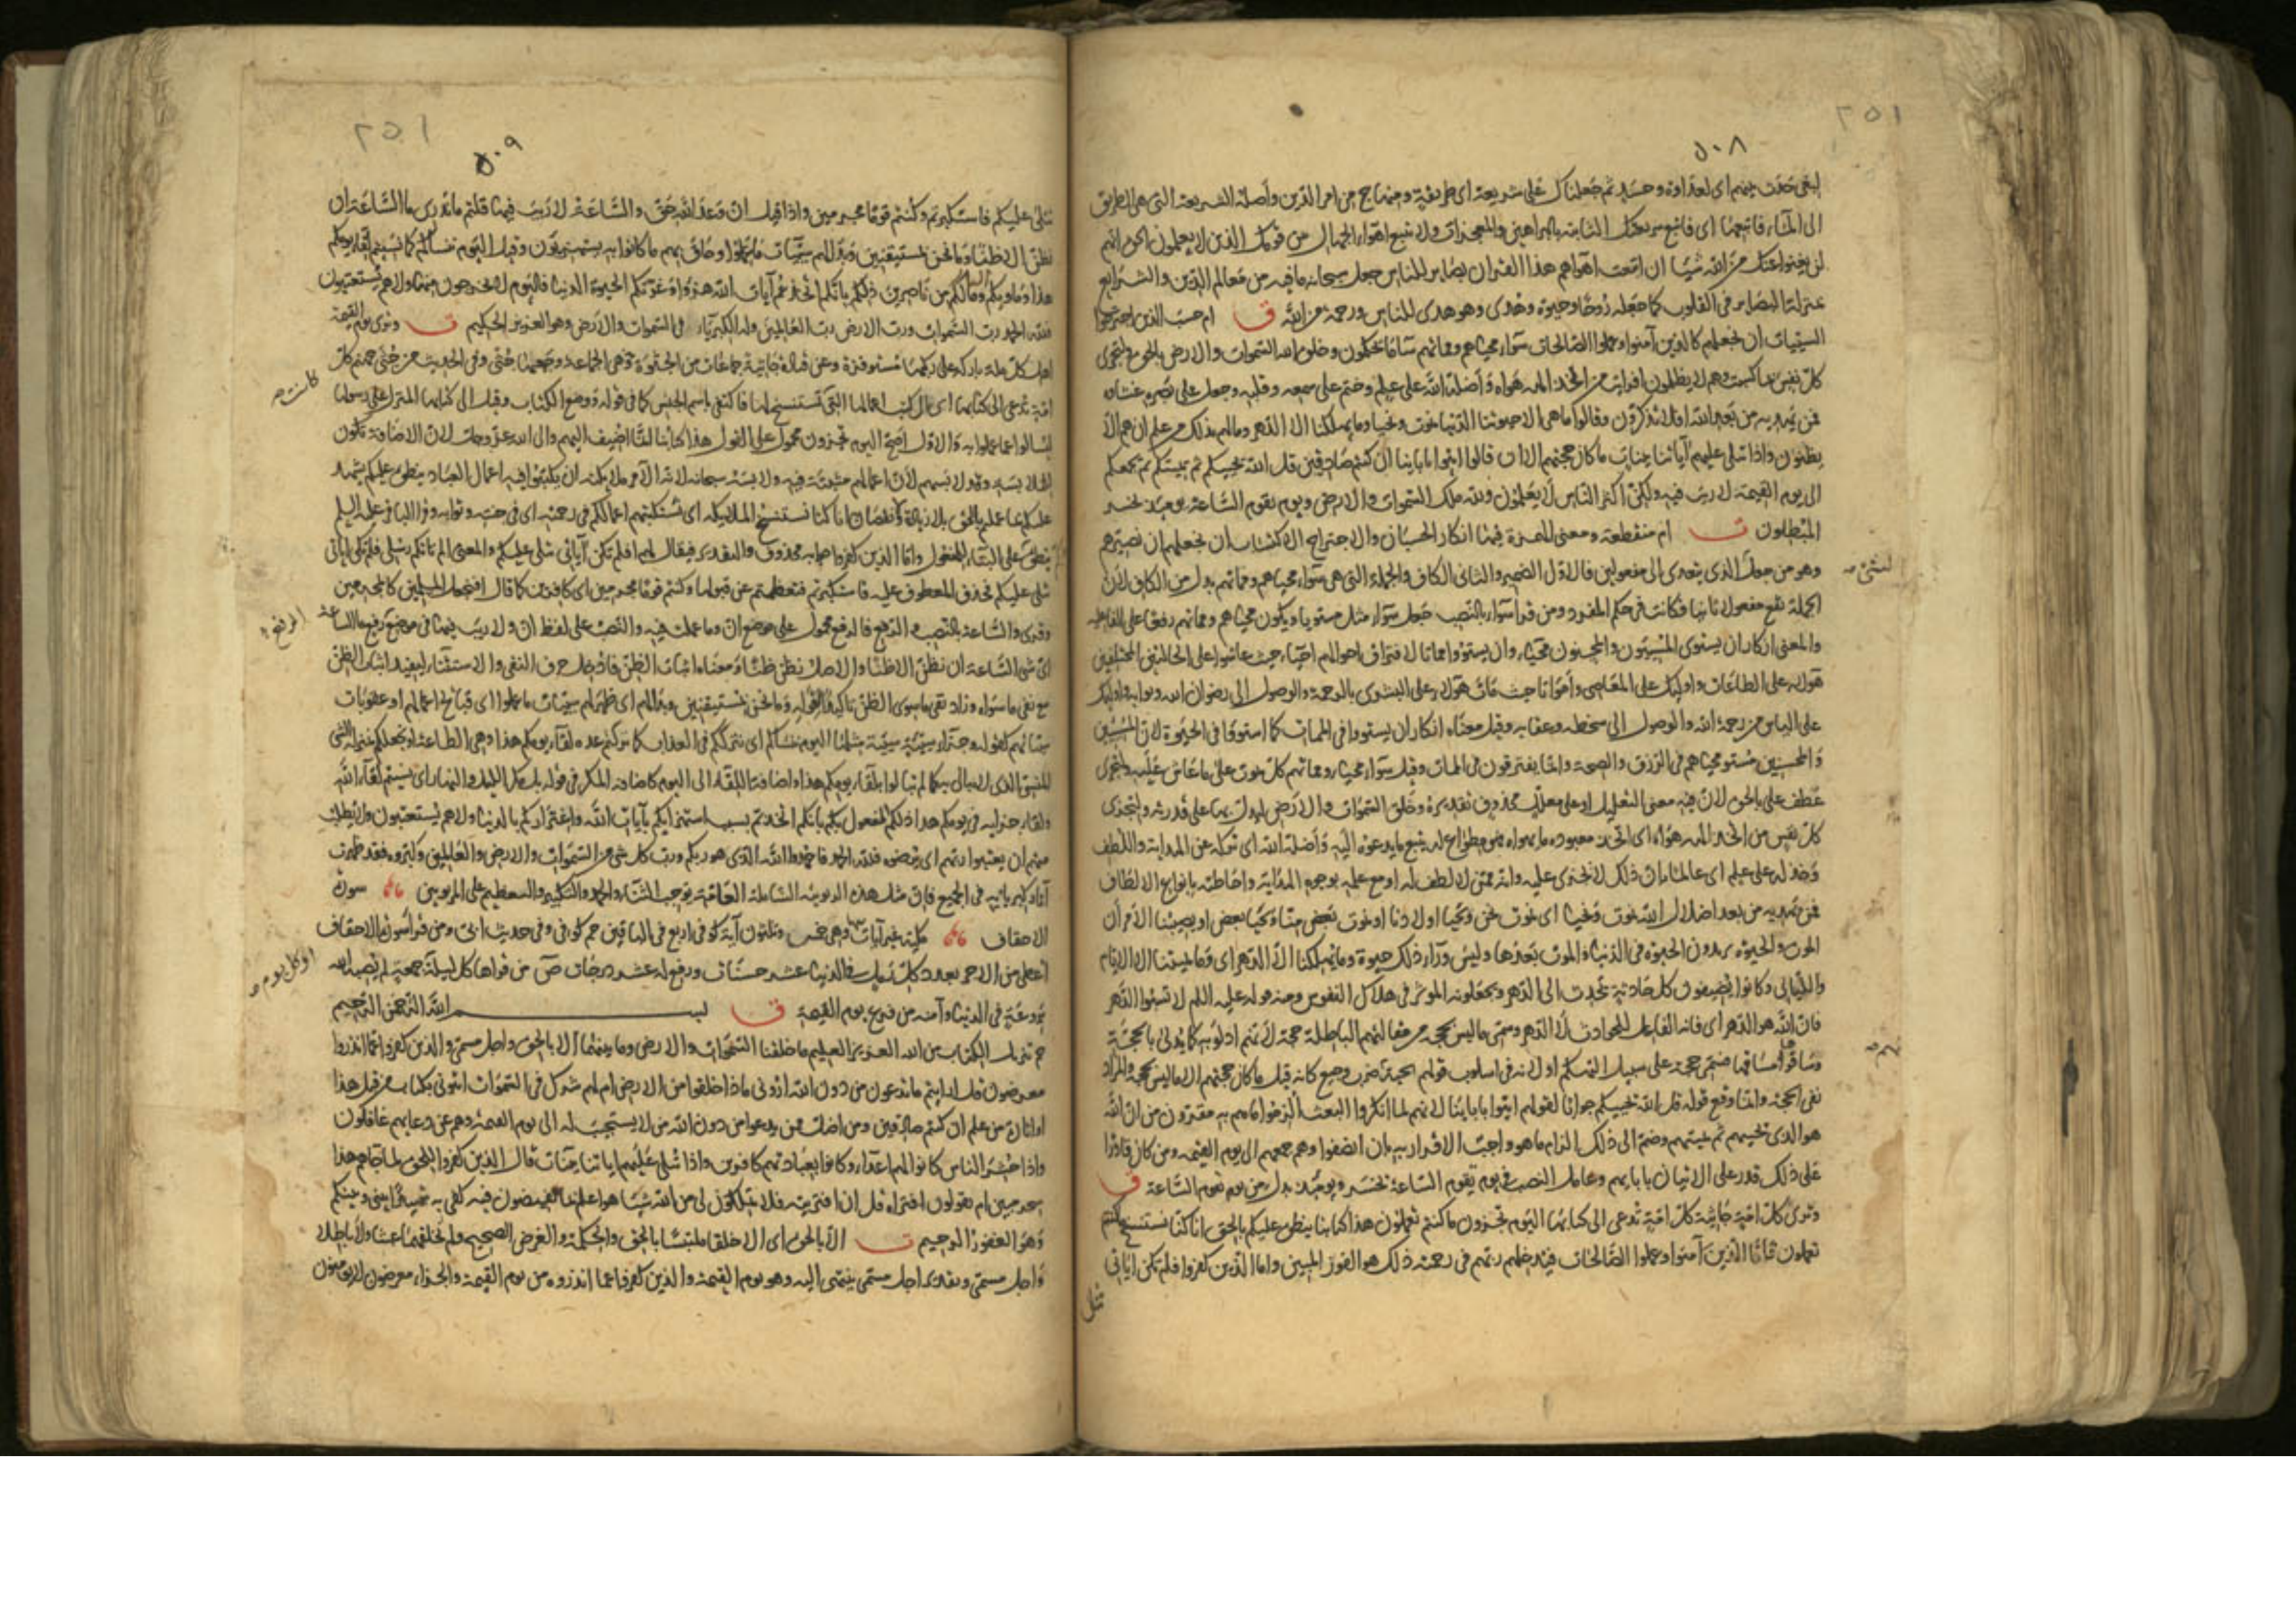 ٢٥١
٥٠٨
لبغى حدث بينهم اى لعداوة وحسد ثم جعلناك على شريعة اى طريقة ومنهاج من امر الدين واصله الشريعة التى هى الطريق
الى الماء فاتبعها اى فاتبع شريعتك الثابتة بالبراهين والمعجزات ولا تتبع اهواء الجهال من قومك الذين لا يعلمون الحق انهم
لن يغنوا عنك من الله شيئا ان اتبعت اهواهم هذا القران بصاير للناس جعل سبحانه ما فيه من معالم الدين والشرايع
بمنزلة البصاير فى القلوب كما جعله روحا وحيوة وهدى وهو هدى للناس ورحمة من الله ق ام حسب الذين اجترحوا
السيئات ان نجعلهم كالذين آمنوا وعملوا الصالحات سواء محياهم ومماتهم ساء ما يحكمون وخلق الله السموات والارض بالحق ولتجزى
كل نفس بما كسبت وهم لا يظلمون افرايت من اتخذ الهه هواه واضله الله على علم وختم على سمعه وقلبه وجعل على بصره غشاوة
فمن يهديه من بعد الله افلا تذكرون وقالوا ما هى الا حيوتنا الدنيا نموت ونحيا وما يهلكنا الا الدهر وما لهم بذلك من علم ان هم الا
يظنون واذا تتلى عليهم آياتنا بينات ما كان حجتهم الا ان قالوا ايتوا باباينا ان كنتم صادقين قل الله يحييكم ثم يميتكم ثم يجمعكم
الى يوم القيمة لا ريب فيه ولكن اكثر الناس لا يعلمون ولله ملك السموات والارض ويوم تقوم الساعة يومئذ يخسر
المبطلون ت ام منقطعة ومعنى الهمزة فيها انكار الحسبان والاجتراح الاكتساب ان نجعلهم ان نصيرهم
وهو من جعل الذى يتعدى الى مفعولين فالاول الضمير والثانى الكاف والجملة التى هى سواء محياهم ومماتهم بدل من الكاف لان
الجملة تقع مفعولا ثانيا فكانت فى حكم المفرد ومن قرا سواء بالنصب جعل سواء مثل مستويا ويكون محياهم ومماتهم رفعا على الفاعلية
والمعنى انكار ان يستوى المسيئون والمحسنون محياء وان يستووا مماتا لافتراق احوالهم احياء حيث عاشوا على الحالتين المختلفتين
هولاء على الطاعات واوليك على المعاصى وامواتا حيث مات هولاء على البشرى بالرحمة والوصول الى رضوان الله وثوابه واوليك
على الياس من رحمة الله والوصول الى سخطه وعقابه وقيل معناه انكار ان يستووا فى الممات كما استووا فى الحيوة لان المسيئين
والمحسنين مستو محياهم فى الرزق والصحة وانما يفترقون فى الممات وقيل سواء محياء ومماتهم كل يموت على ما عاش عليه ولتجزى
عطف على بالحق لان فيه معنى التعليل او على معلل محذوف تقديره وخلق السموات والارض ليدل بها على قدرته ولتجزى
كل نفس من اتخذ الهه هواه اى اتخذ معبوده ما يهواه فهو مطواع له يتبع ما يدعوه اليه واضله الله اى تركه عن الهداية واللطف
وخذله على علم اى عالما بان ذلك لا يجدى عليه وانه ممن لا لطف له او مع علمه بوجوه الهداية واحاطته بانواع الالطاف
فمن يهديه من بعد اضلال الله نموت ونحيا اى نموت نحن ونحيا اولادنا او نموت بعض منا ونحيا بعض او يصيبنا الامران
الموت والحيوة يريدون الحيوة فى الدنيا والموت بعدها وليس وراء ذلك حيوة وما يهلكنا الا الدهر اى وما يميتنا الا الايام
والليالى وكانوا يضيفون كل حادثة تحدث الى الدهر ويجعلونه الموثر فى هلاك النفوس ومنه قوله عليه السلم لا تسبوا الدهر
فان الله هو الدهر اى فانه الفاعل للحوادث لا الدهر وسمى ما ليس بحجة من مقالتهم الباطلة حجة لانهم ادلوا به كما يدلى بالحجة
وساقوا مساقها فسمى حجة على سبيل التهكم او لانه فى اسلوب قولهم تحية بينهم ضرب وجيع كانه قيل ما كان حجتهم الا ما ليس بحجة والمراد
نفى الحجة وانما وقع قوله قل الله يحييكم جوابا لقولهم ايتوا باباينا لانهم لما انكروا البعث الزموا ما هم به مقرون من ان الله
هو الذى يحييهم ثم يميتهم وضم الى ذلك الزام ما هو واجب الاقرار به ان انصفوا وهو جمعهم الى يوم القيمة ومن كان قادرا
على ذلك قدر على الاتيان بابايهم وعامل النصب فى يوم تقوم الساعة يخسر ويومئذ بدل من يوم تقوم الساعة ق
وترى كل امة جاثية كل امة تدعى الى كتابها اليوم تجزون ما كنتم تعملون هذا كتابنا ينطق عليكم بالحق انا كنا نستنسخ ما كنتم
تعملون فاما الذين آمنوا وعملوا الصالحات فيدخلهم ربهم فى رحمته ذلك هو الفوز المبين واما الذين كفروا افلم تكن اياتى
تتلى
٢٥١
٥٠٩
تتلى عليكم فاستكبرتم وكنتم قوما مجرمين واذا قيل ان وعد الله حق والساعة لا ريب فيها قلتم ما ندرى ما الساعة ان
نظن الا ظنا وما نحن بمستيقنين وبدا لهم سيئات ما عملوا وحاق بهم ما كانوا به يستهزؤن وقيل اليوم ننساكم كما نسيتم لقاء يومكم
هذا وماويكم النار وما لكم من ناصرين ذلكم بانكم اتخذتم آيات الله هزوا وغرتكم الحيوة الدنيا فاليوم لا يخرجون منها ولا هم يستعتبون
فلله الحمد رب السموات ورب الارض رب العالمين وله الكبرياء فى السموات والارض وهو العزيز الحكيم ت وترى يوم القيمة
اهل كل ملة باركة على ركبها مستوفزة وعن قتادة جاثية جماعات من الجثوة وهى الجماعة وجمعها جثى وفى الحديث من جثى جهنم كل
امة تدعى الى كتابها اى الى كتب اعمالها التى تستنسخ لها فاكتفى باسم الجنس كما فى قوله ووضع الكتاب وقيل الى كتابها المنزل على رسولها
ليسالوا عما عملوا به والاول اصح اليوم تجزون محمول على القول هذا كتابنا انما اضيف اليهم والى الله عز وجل لان الاضافة تكون
للملابسة وقد لابسهم لان اعمالهم مثبتة فيه ولابسه سبحانه لانه الآمر ملايكته ان يكتبوا فيه اعمال العباد ينطق عليكم يشهد
عليكم بما عملتم بالحق بلا زيادة ونقصان انا كنا نستنسخ الملايكة اى نستكتبهم اعمالكم فى رحمته اى فى جنته وثوابه وقرا الباقر عليه السلم
ينطق على البناء للمفعول واما الذين كفروا جوابه محذوف والتقدير فيقال لهم افلم تكن آياتى تتلى عليكم والمعنى الم تاتكم رسلى فلم تكن اياتى
تتلى عليكم فحذف المعطوف عليه فاستكبرتم فتعظمتم عن قبولها وكنتم قوما مجرمين اى كافرين كما قال افنجعل المسلمين كالمجرمين
وقرى والساعة بالنصب والرفع فالرفع محمول على موضع ان وما عملت فيه والنصب على لفظ ان ولا ريب فيها فى موضع رفع ما الساعة
اى شى الساعة ان نظن الا ظنا والاصل نظن ظنا ومعناه اثبات الظن فادخل حرف النفى والاستثناء ليفيد اثبات الظن
مع نفى ما سواه وزاد نفى ما سوى الظن تاكيدا بقوله وما نحن بمستيقنين وبدا لهم اى ظهر لهم سيئات ما عملوا اى قبايح اعمالهم او عقوبات
سيئاتهم كقوله وجزاء سيئة سيئة مثلها اليوم ننساكم اى نترككم فى العذاب كما تركتم عدة لقاء يومكم هذا وهى الطاعة او نجعلكم بمنزلة الشى
المنسى الذى لا يبالى به كما لم تبالوا بلقاء يومكم هذا واضافة اللقاء الى اليوم كاضافة المكر فى قوله بل مكر الليل والنهار اى نسيتم لقاء الله
ولقاء جزايه فى يومكم هذا ذلكم المفعول بكم بانكم اتخذتم بسبب استهزايكم بآيات الله واغتراركم بالدنيا ولا هم يستعتبون ولا يطلب
منهم ان يعتبوا ربهم اى يرضوه فلله الحمد فاحمدوا الله الذى هو ربكم ورب كل شى من السموات والارض والعالمين وكبروه فقد ظهرت
آثار كبريائه فى الجميع فان مثل هذه الربوبية الشاملة العامة توجب الثناء والحمد والتكبير والتعظيم على المربوبين سورة
الاحقاف مكية غير آيات وهى خمس وثلثون آية كوفى اربع فى الباقين حم كوفى وفى حديث ابى ومن قرا سورة الاحقاف
اعطى من الاجر بعدد كل رمل فى الدنيا عشر حسنات ورفع له عشر درجات ص من قراها كل ليلة جمعة لم يصبه الله
بروعة فى الدنيا وآمنه من فزع يوم القيمة ق بسم الله الرحمن الرحيم
حم تنزيل الكتاب من الله العزيز الحكيم ما خلقنا السموات والارض وما بينهما الا بالحق واجل مسمى والذين كفروا عما انذروا
معرضون قل ارايتم ما تدعون من دون الله ارونى ماذا خلقوا من الارض ام لهم شرك فى السموات ايتونى بكتاب من قبل هذا
او اثارة من علم ان كنتم صادقين ومن اضل ممن يدعوا من دون الله من لا يستجيب له الى يوم القيمة وهم عن دعايهم غافلون
واذا حشر الناس كانوا لهم اعداء وكانوا بعبادتهم كافرين واذا تتلى عليهم اياتنا بينات قال الذين كفروا للحق لما جاءهم هذا
سحر مبين ام يقولون افتراه قل ان افتريته فلا تملكون لى من الله شيئا هو اعلم بما تفيضون فيه كفى به شهيدا بينى وبينكم
وهو الغفور الرحيم ت الا بالحق اى الا خلقا ملتبسا بالحق والحكمة والغرض الصحيح ولم نخلقهما عبثا ولا باطلا
واجل مسمى وبتقدير اجل مسمى ينتهى اليه وهو يوم القيمة والذين كفروا عما انذروه من يوم القيمة والجزاء معرضون لا يؤمنون